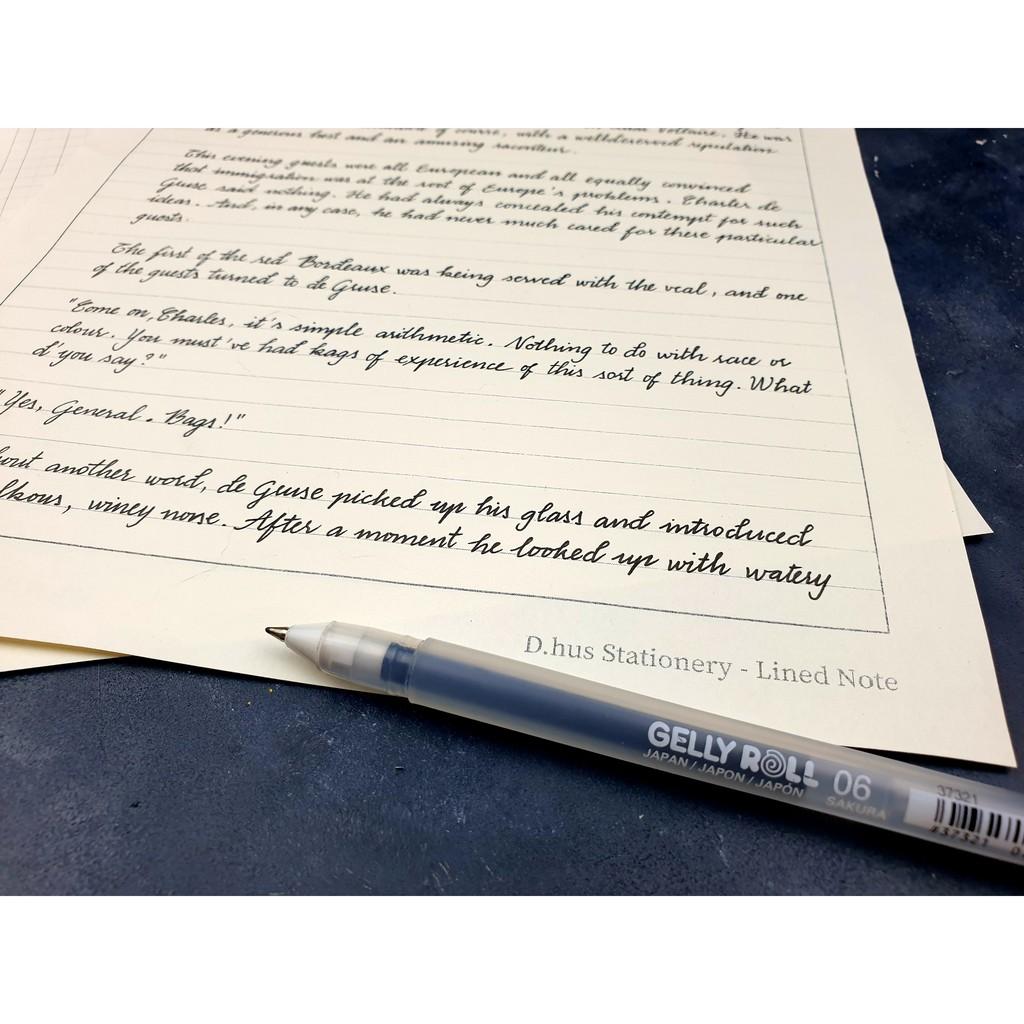 of course, with a welldeserved reputation Voltaire. He was
as a generous host and an amusing raconteur.
This evening guests were all European and all equally convinced
that immigration was at the root of Europe's problems. Charles de
Gruse said nothing. He had always concealed his contempt for such
ideas. And, in any case, he had never much cared for these particular
guests.
The first of the red Bordeaux was being served with the veal, and one
of the guests turned to de Gruse.
"Come on, Charles, it's simple arithmetic. Nothing to do with race or
colour. You must've had bags of experience of this sort of thing. What
d'you say?"
"Yes, General. Bags!"
another word, de Gruse picked up his glass and introduced
winey nose. After a moment he looked up with watery
D.hus Stationery - Lined Note
GELLY ROLL 06
JAPAN / JAPON / JAPÓN SAKURA
37321